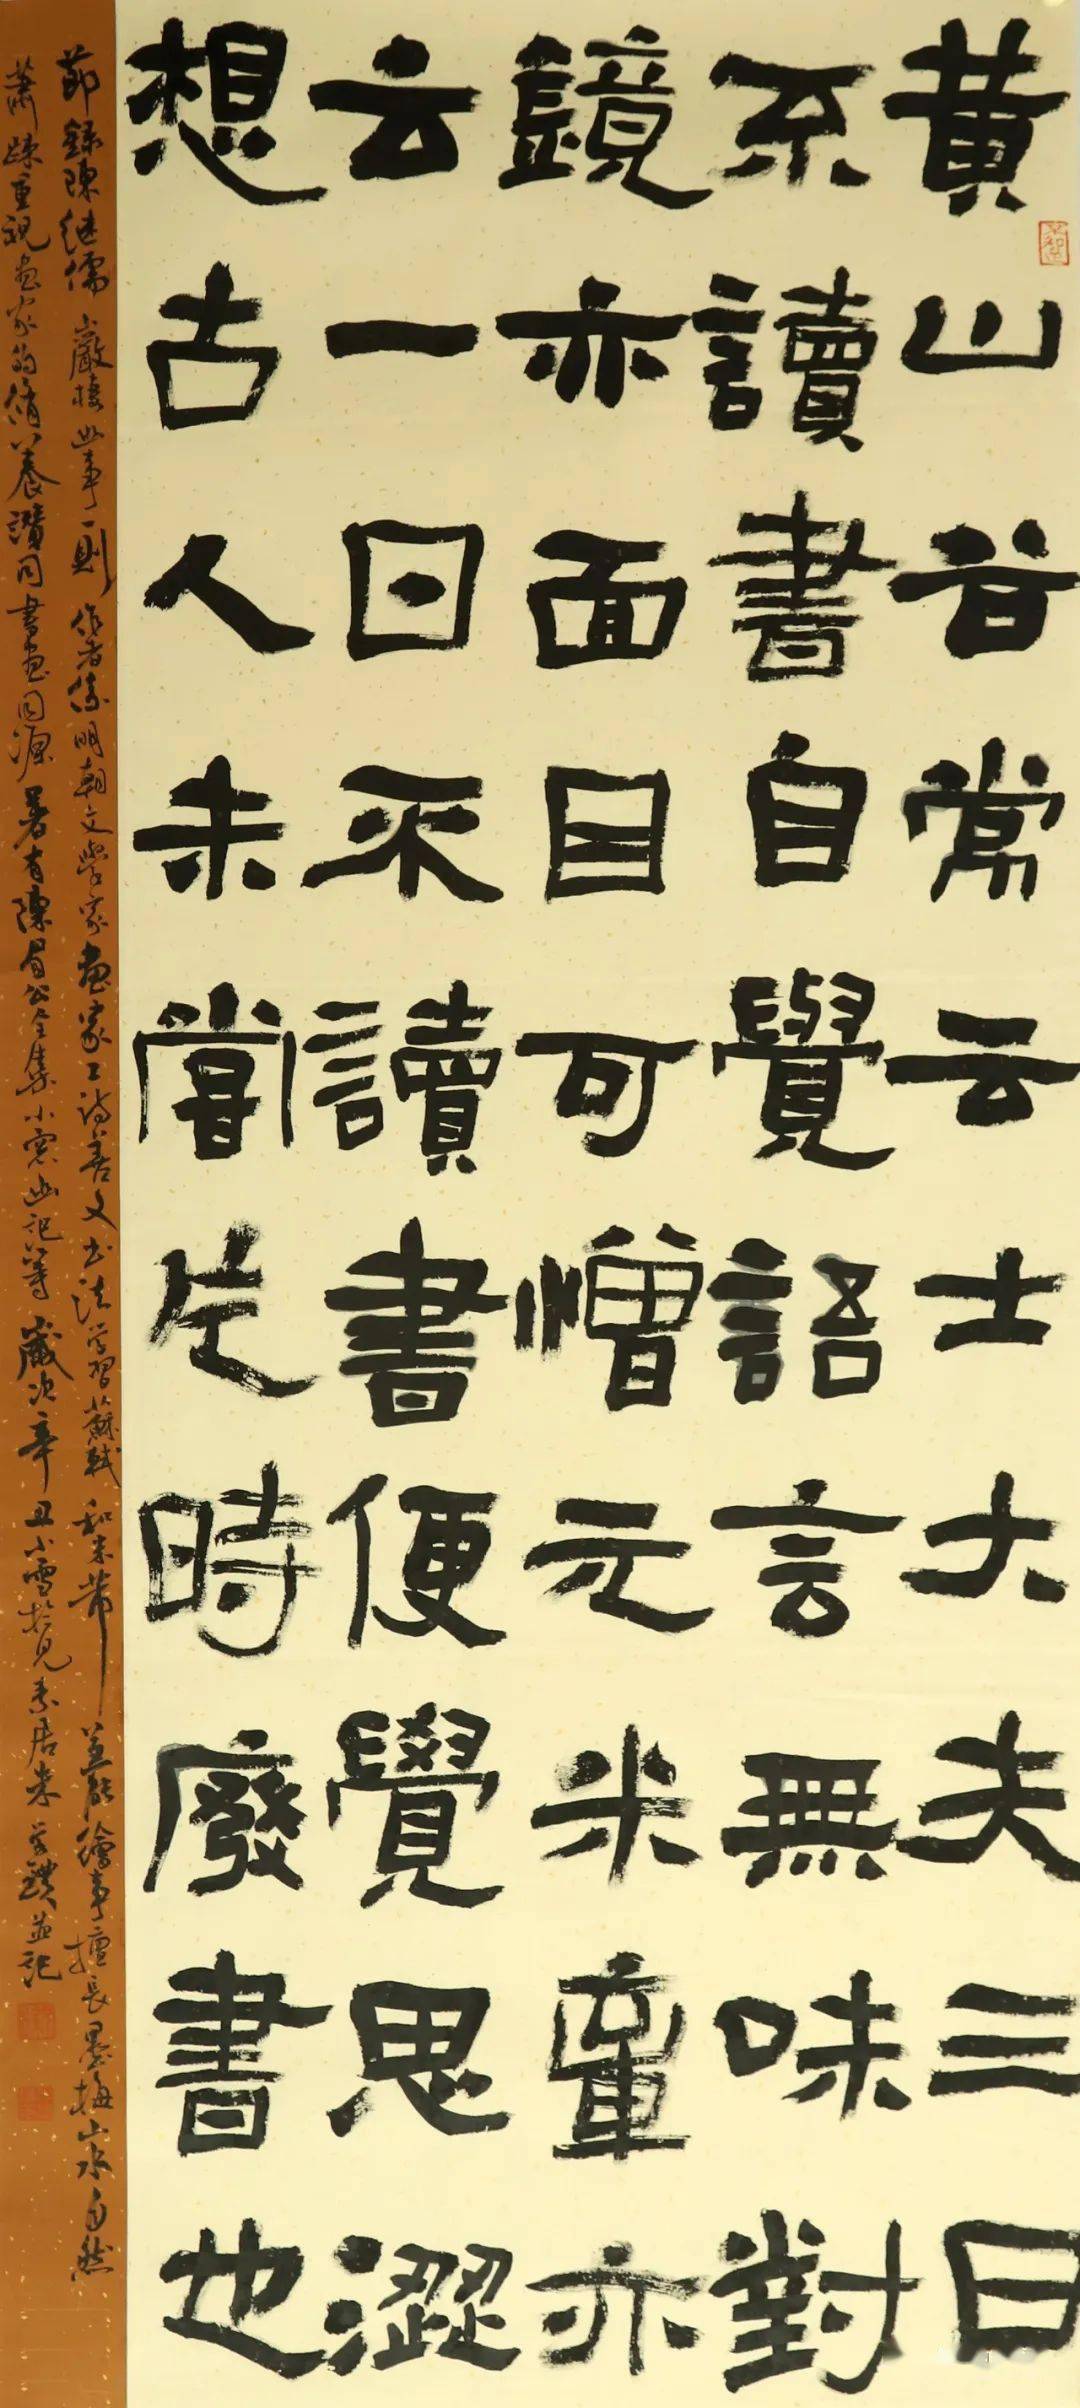 黄山谷常云士大夫三日
不讀書自覺語言無味對
鏡亦面目可憎元米章亦
云一日不讀書便覺思澀
想古人未嘗片時廢書也
節錄陳继儒巖棲幽事一則作者係明朝文學家畫家工詩善文书法学習蘇軾和米芾並能繪事擅長墨梅山水自然
蕭疎重視畫家的脩養讚同書畫同源著有陳眉公全集小窓幽記等歲次辛丑小雪於見素居並記